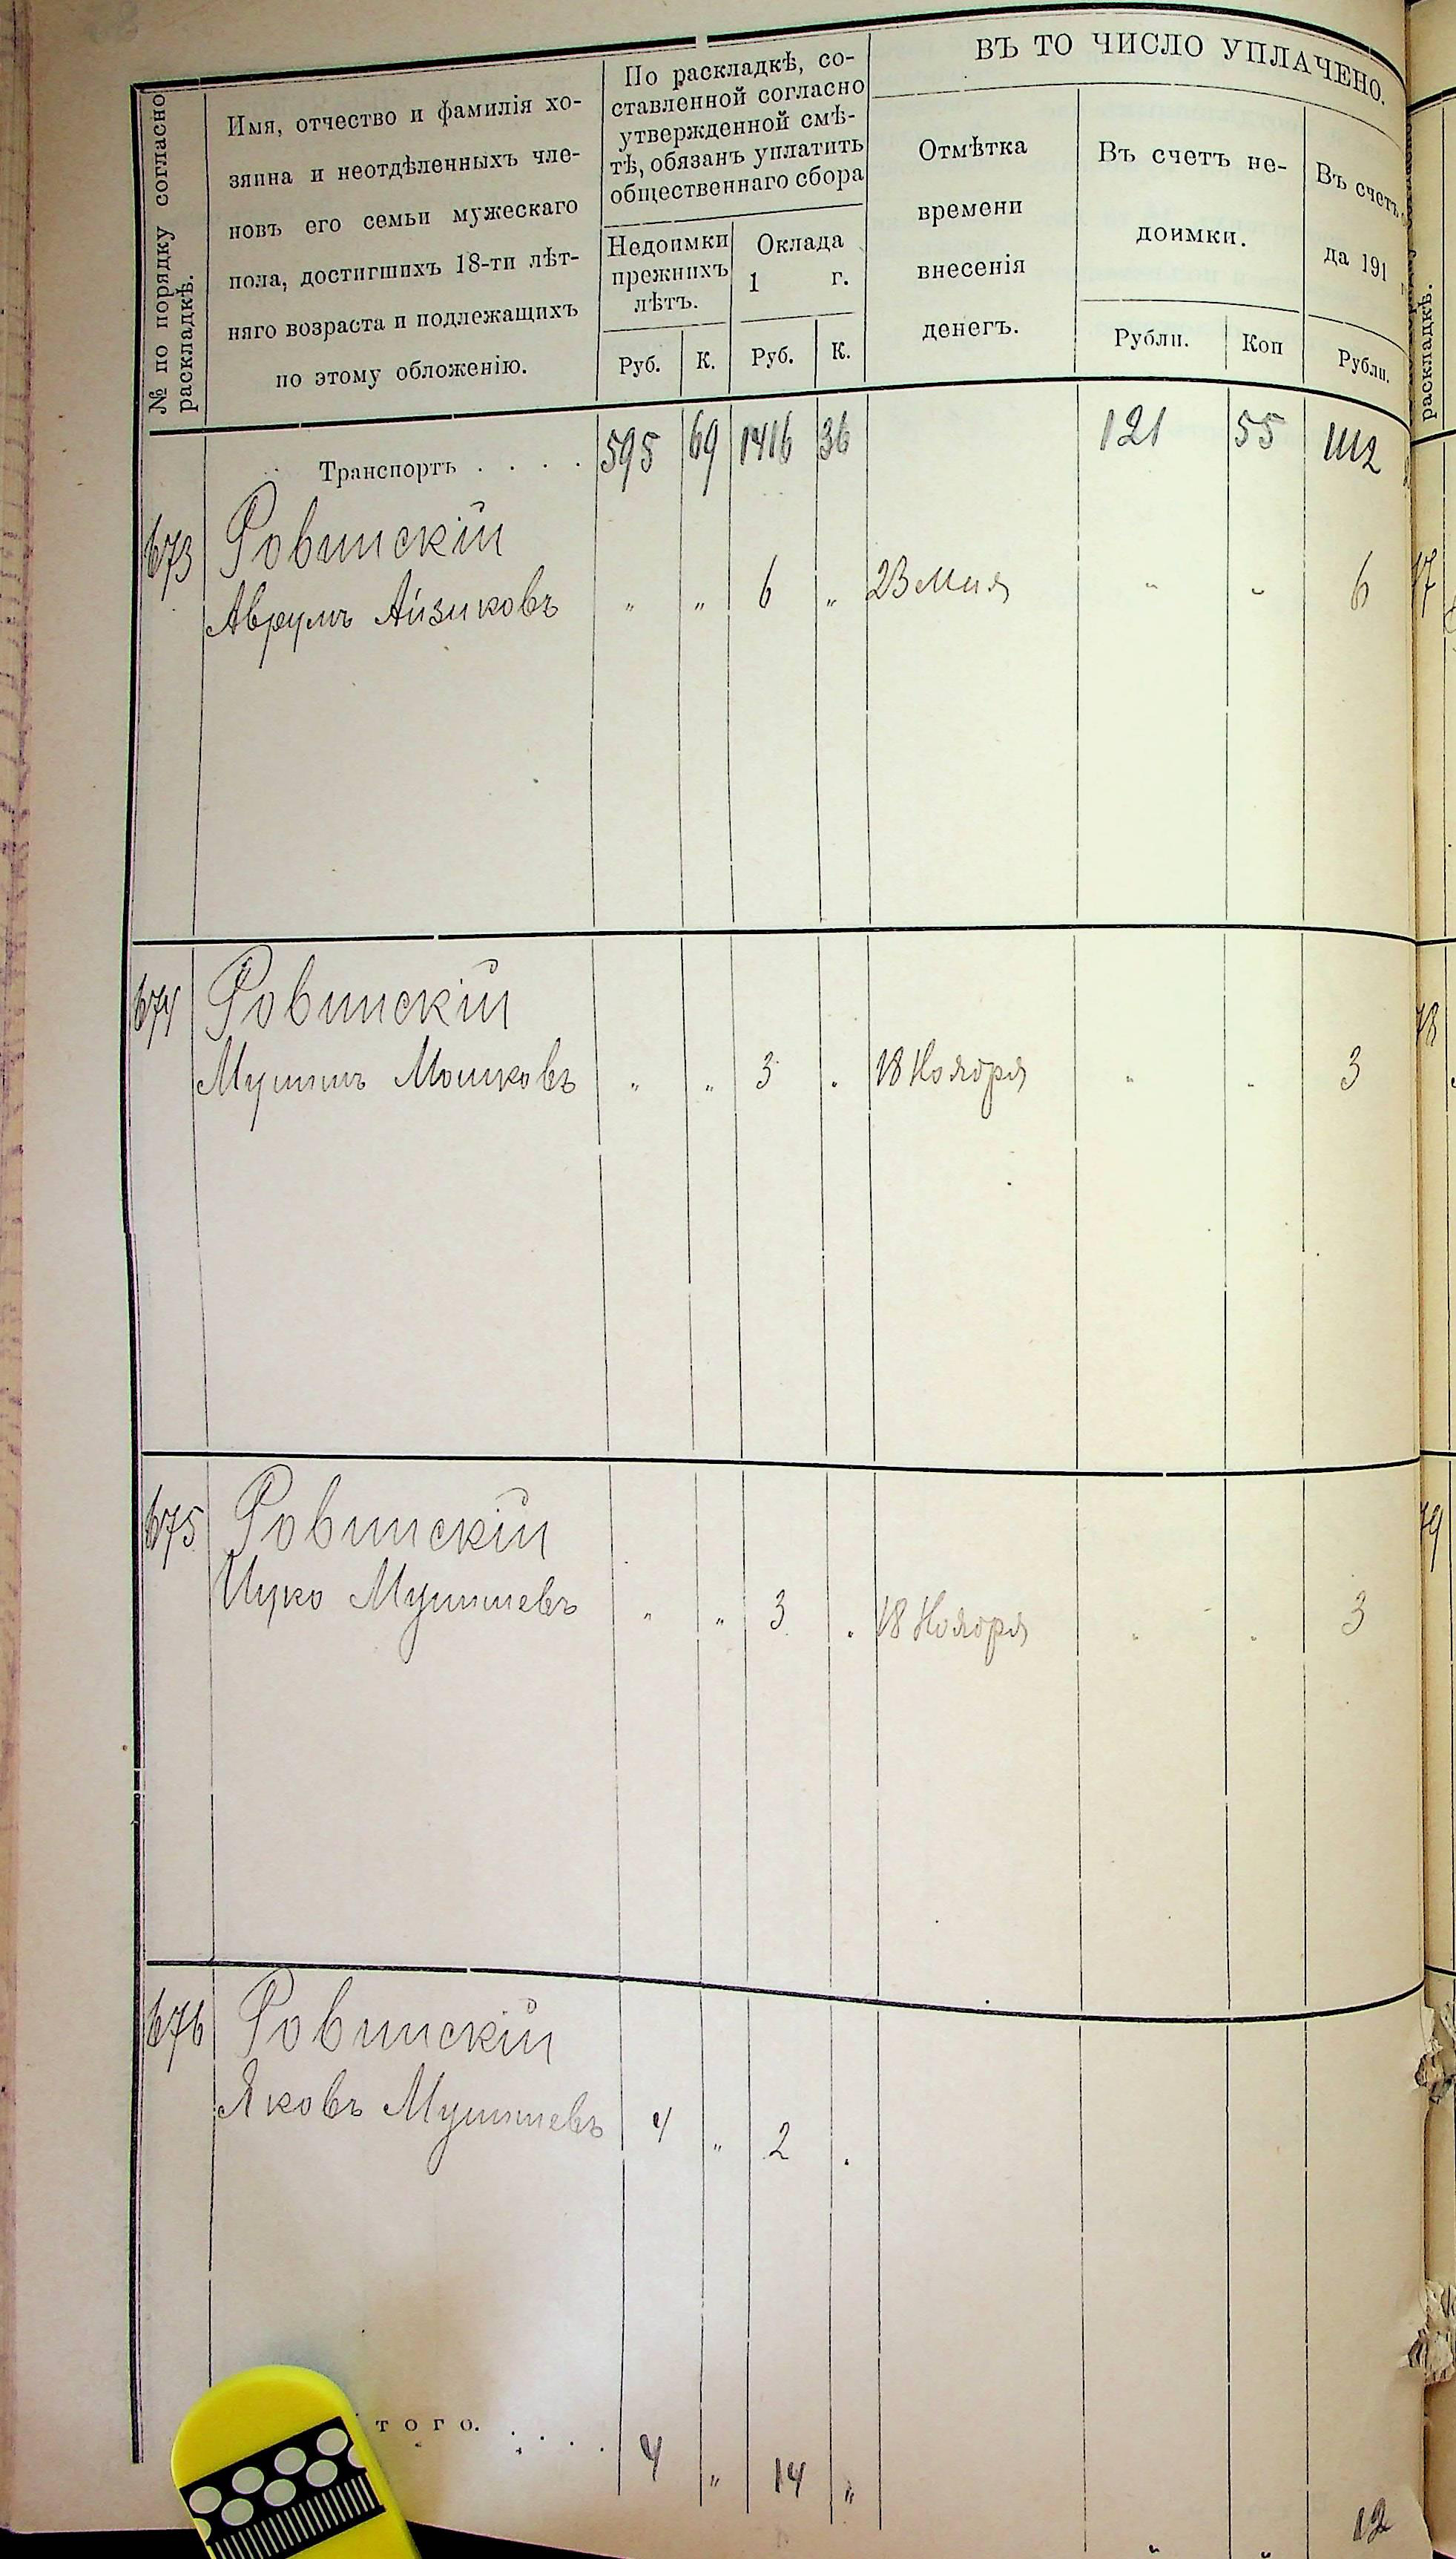 № по порядку согласно
раскладкѣ.
Имя, отчество и фамилія хо-
зяина и неотдѣленныхъ чле-
новъ его семьи мужескаго
пола, достигшихъ 18-ти лѣт-
няго возраста и подлежащихъ
по этому обложенію.
По раскладкѣ, со-
ставленной согласно
утвержденной смѣ-
тѣ, обязанъ уплатить
общественнаго сбора
Недоимки
прежнихъ
лѣтъ.
Оклада
1 г.
Руб. К. Руб. К.
ВЪ ТО ЧИСЛО УПЛАЧЕНО.
Отмѣтка
времени
внесенія
денегъ.
Въ счетъ не-
доимки.
Рубли. Коп
Въ счетъ
да 191
Рубли.
Транспортъ . . . . 595 69 1416 36 121 55 1112
673 Ровинскій
Аврумъ Айзиковъ " " 6 " 23 Мая " " 6
674 Ровинскій
Мунишъ Мошковъ " " 3 " 18 Ноября " " 3
675 Ровинскій
Ицко Мунишевъ " " 3 " 18 Ноября " " 3
676 Ровинскій
Яковъ Мунишевъ 4 " 2 "
того. . . . . 4 " 14 " " " 12
раскладкѣ.